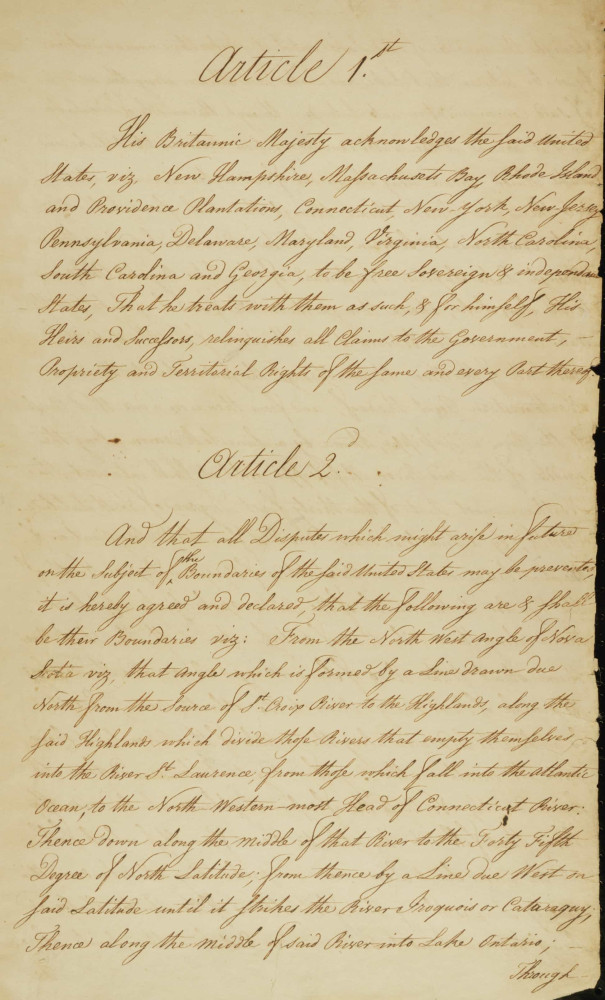 Article 1.st
His Britannic Majesty acknowledges the said United
States, viz, New Hampshire, Massachusets Bay, Rhode Island
and Providence Plantations, Connecticut, New-York, New Jersey
Pennsylvania, Delaware, Maryland, Virginia, North Carolina,
South Carolina and Georgia, to be free Sovereign & independent
States, That he treats with them as such, & for himself, His
Heirs and Successors, relinquishes all Claims to the Government, –
Propriety and Territorial Rights of the same and every Part thereof.
Article 2.d
And that all Disputes which might arise in future
on the Subject of the Boundaries of the said United States may be prevented
it is hereby agreed and declared, that the following are & shall
be their Boundaries viz: From the North West Angle of Nova
Scotia viz, that Angle which is formed by a Line drawn due
North from the Source of St. Croix River to the Highlands, along the
said Highlands which divide those Rivers that empty themselves –
into the River St. Laurence, from those which fall into the Atlantic
Ocean, to the North-Western-most Head of Connecticut River:
Thence down along the middle of that River to the Forty Fifth
Degree of North Latitude; from thence by a Line due West on
said Latitude until it strikes the River Iroquois or Cataraquy;
Thence along the middle of said River into Lake Ontario; –
Through